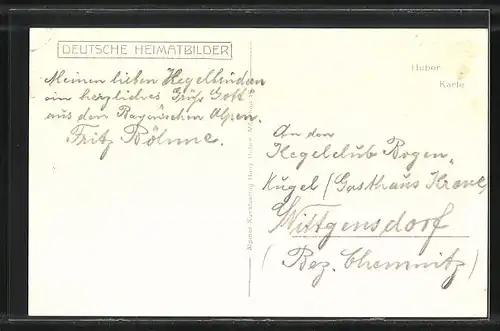 DEUTSCHE HEIMATBILDER
Meinen lieben Kegelbrüdern
ein herzliches Grüß Gott
aus den Bayerischen Alpen.
Fritz Böhme.
Huber
Karte
An den
Kegelclub Bogen-
Kugel (Gasthaus Krone)
Wittgensdorf
(Bez. Chemnitz)
Alpiner Kunstverlag Hans Huber